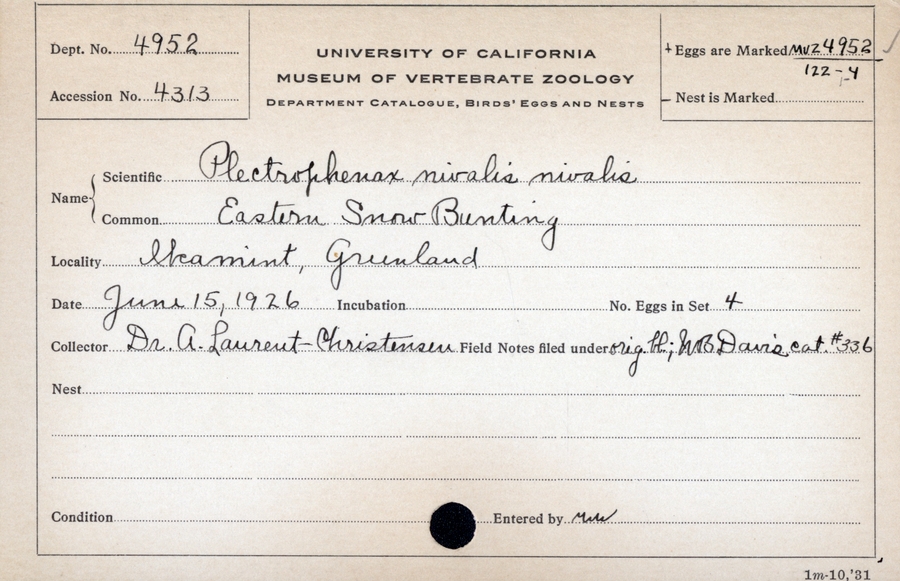 Dept. No. 4952
Accession No. 4313
UNIVERSITY OF CALIFORNIA
MUSEUM OF VERTEBRATE ZOOLOGY
DEPARTMENT CATALOGUE, BIRDS' EGGS AND NESTS
+ Eggs are Marked MVZ 4952
122-4
– Nest is Marked
Name { Scientific Plectrophenax nivalis nivalis
Common Eastern Snow Bunting
Locality Ikamint, Greenland
Date June 15, 1926 Incubation No. Eggs in Set 4
Collector Dr. A. Laurent-Christensen Field Notes filed under orig. bl; WB Davis cat. #336
Nest
Condition Entered by
1m-10,'31